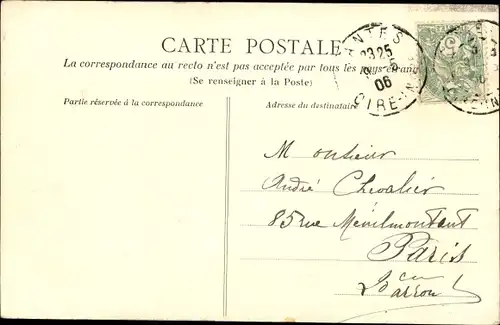 CARTE POSTALE
La correspondance au recto n'est pas acceptée par tous les pays étrang
(Se renseigner à la Poste)
Partie réservée à la correspondance
Adresse du destinataire
NANTES
23 25
06
Monsieur
André Chevalier
85 rue Ménilmontant
Paris